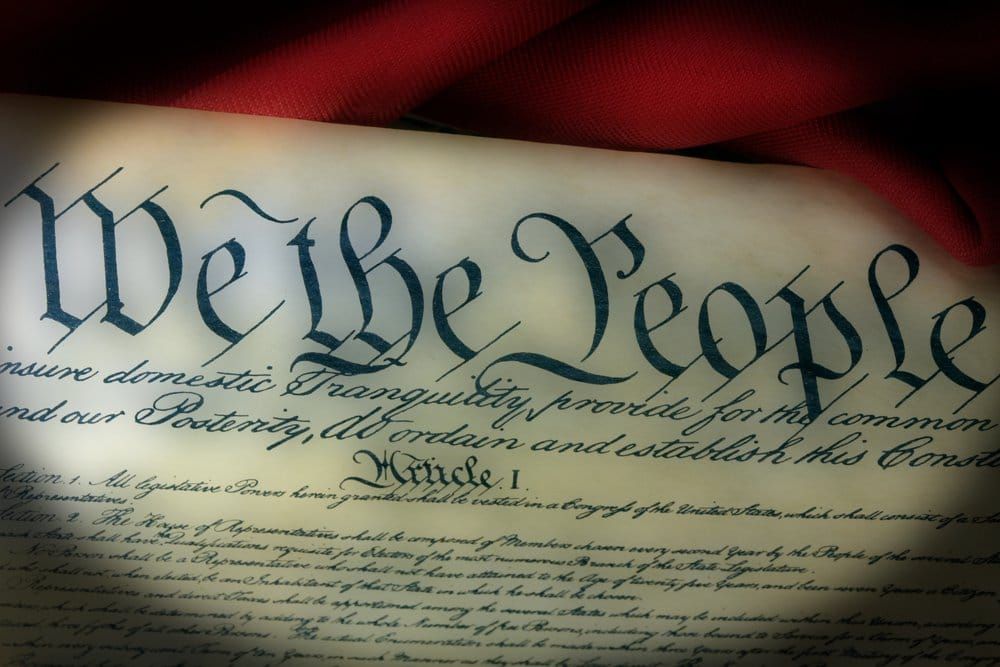 We the People
insure domestic Tranquility, provide for the common
and our Posterity, do ordain and establish this Const
Article. I.
Section. 1. All legislative Powers herein granted shall be vested in a Congress of the United States, which shall consist of a
Representatives.
Section. 2. The House of Representatives shall be composed of Members chosen every second Year by the People of the several
each State shall have the Qualifications requisite for Electors of the most numerous Branch of the State Legislature.
No Person shall be a Representative who shall not have attained to the Age of twenty five Years, and been seven Years a Citizen
who shall not, when elected, be an Inhabitant of that State in which he shall be chosen.
Representatives and direct Taxes shall be apportioned among the several States which may be included within this Union, according
which shall be determined by adding to the whole Number of free Persons, including those bound to Service for a Term of Years,
of all other Persons. The actual Enumeration shall be made within three Years after the first Meeting of the